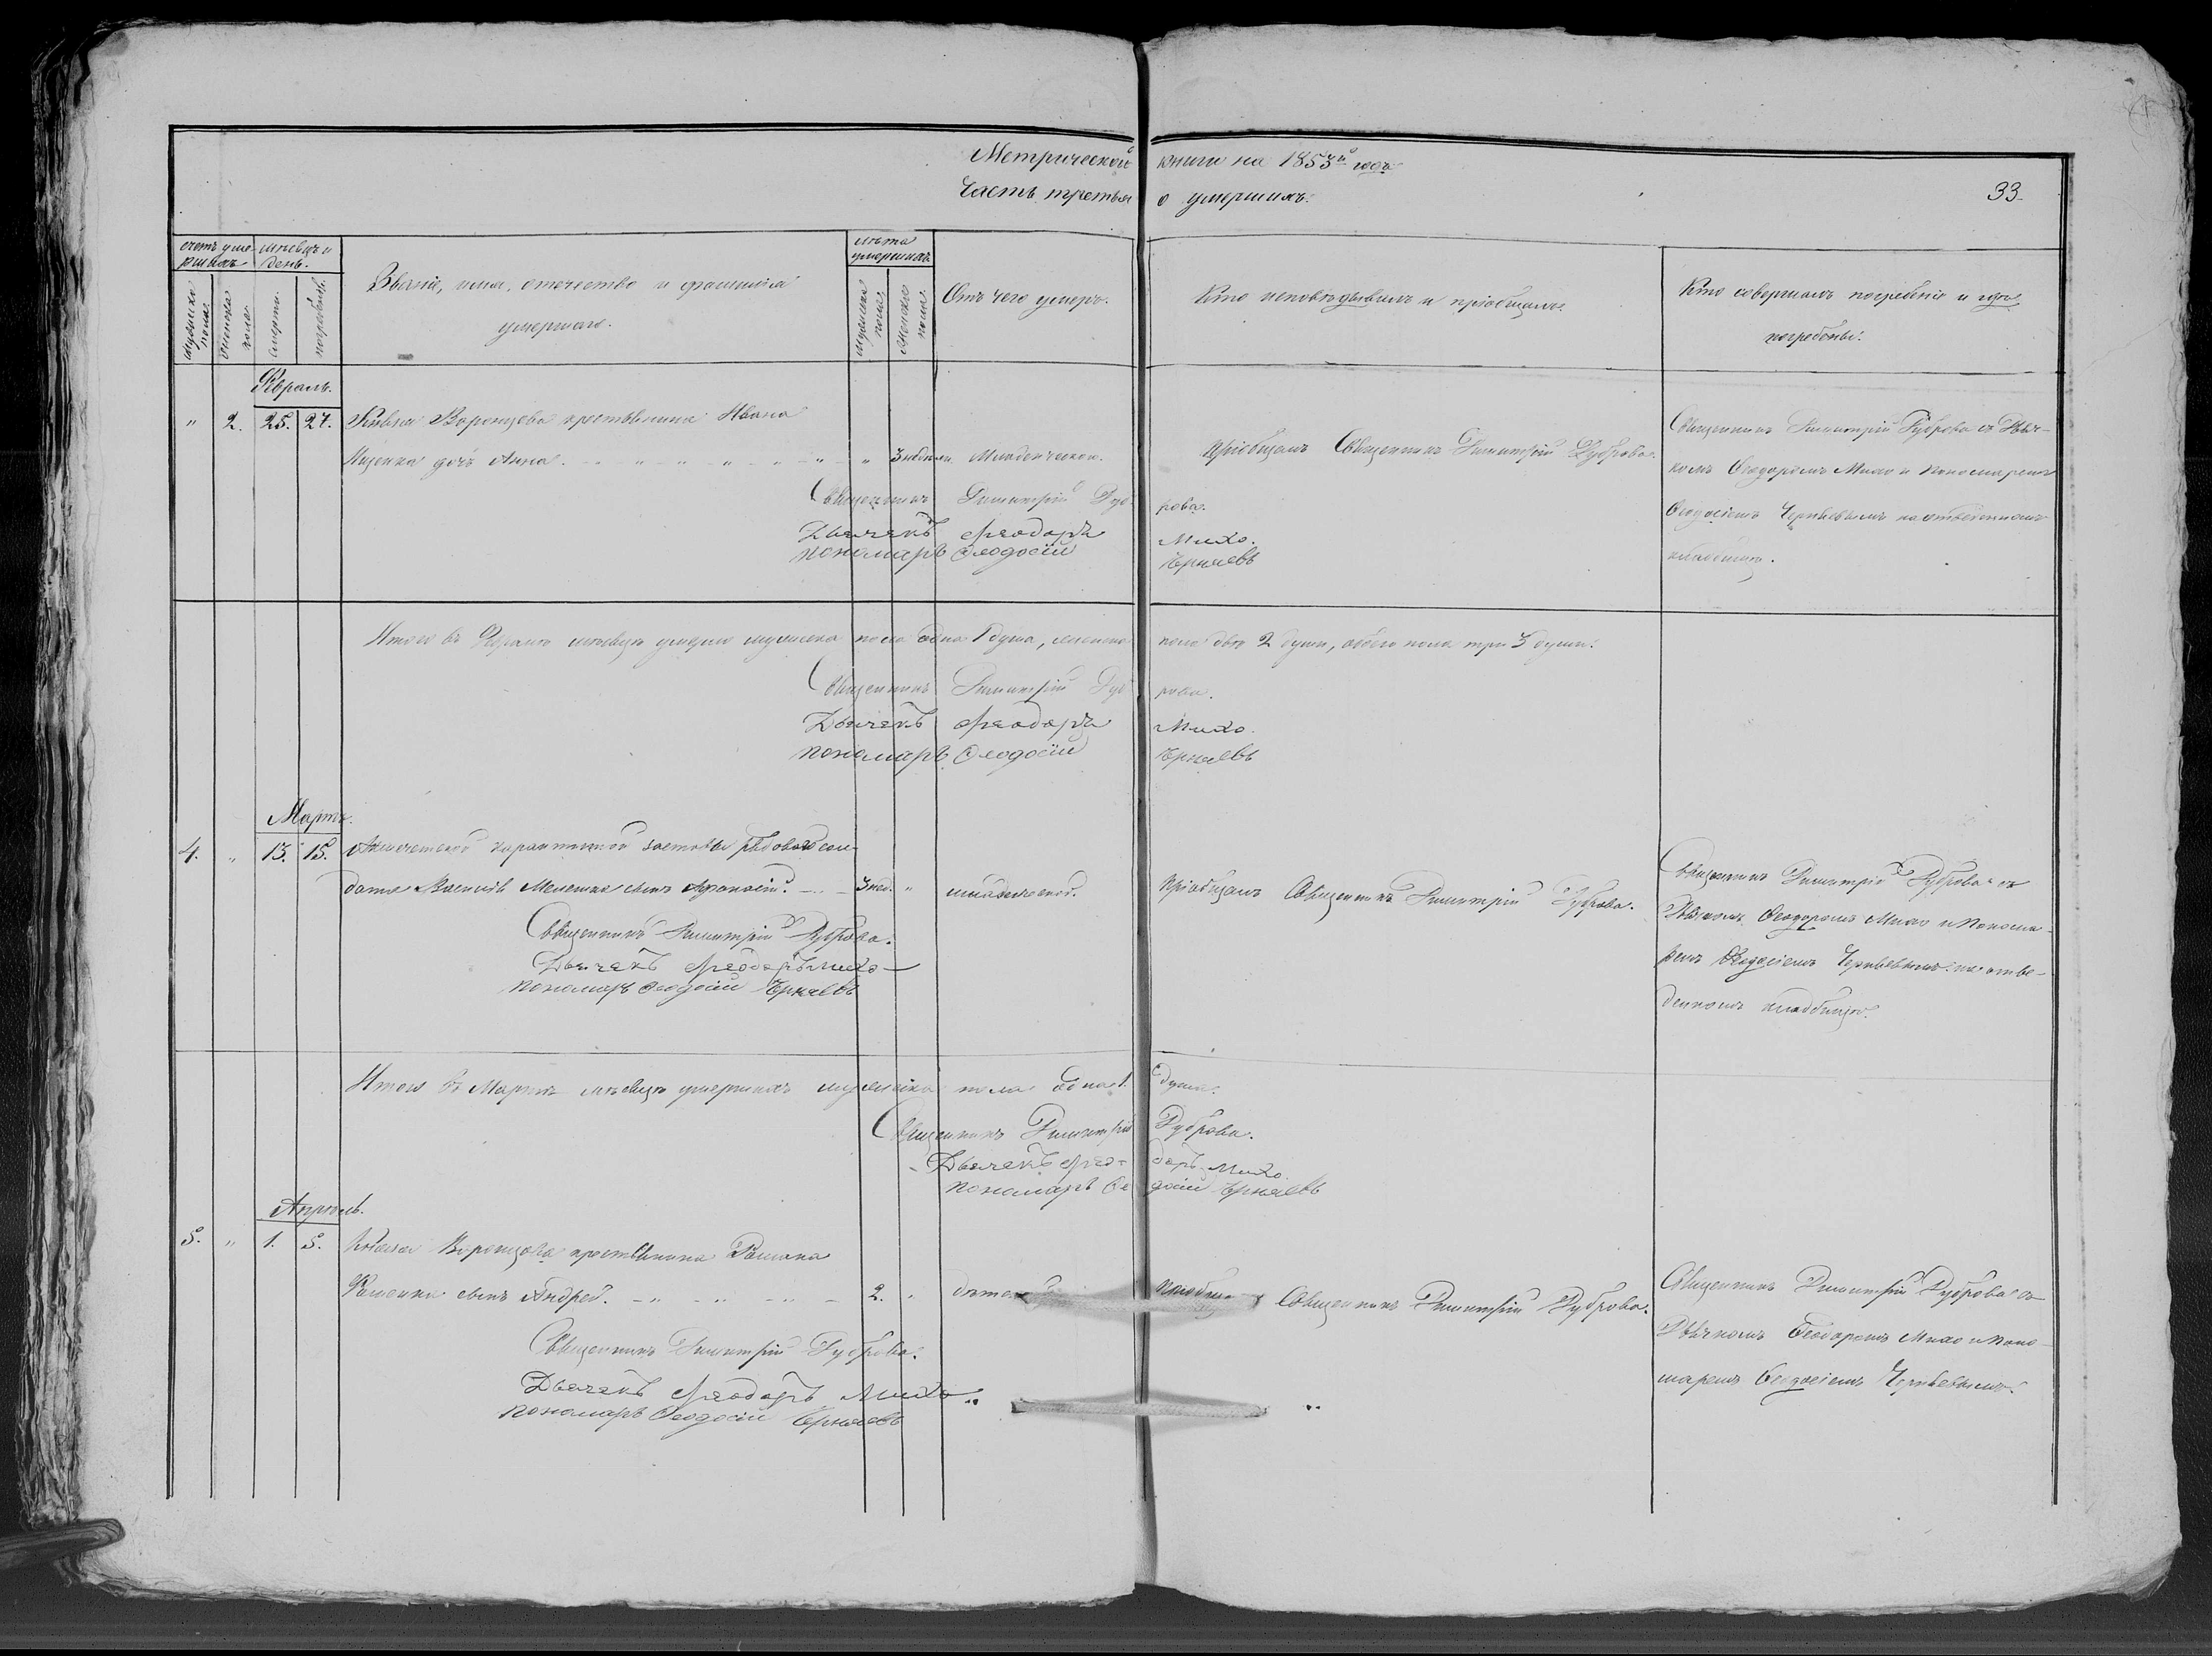 Метрической книги на 1853й годъ
Часть третья о умершихъ. 33
счетъ умершихъ
мѣсяцъ и день.
Званіе, имя, отечество и фамилія умершаго.
лѣта умершихъ
Отъ чего умеръ.
Кто исповѣдывалъ и пріобщалъ.
Кто совершалъ погребеніе и гдѣ погребены.
мужеска пола
женска пола
смерти.
погребенія.
мужеска пола.
женска пола.
Февраль.
" 2. 25. 27. Князя Воронцова крестьянина Ивана
дочь Анна. 3 недѣли Младенческой. Пріобщалъ Священникъ Димитрій Дуброва.
Священникъ Димитрій Дуброва съ Дьяч-
комъ Феодоромъ Михо и Пономаремъ
Феодосіемъ Черняевымъ на отведенномъ
кладбищѣ.
Священникъ Димитрій Дуброва.
Дьячекъ Феодоръ Михо.
пономарь Феодосій Черняевъ
Итого въ Февралѣ мѣсяцѣ умерло мужеска пола одна 1 душа, женска пола двѣ 2 души, обоего пола три 3 души.
Священникъ Димитрій Дуброва.
Дьячекъ Феодоръ Михо.
пономарь Феодосій Черняевъ
Мартъ.
4. " 13. 15. карантинной заставы рядоваго сол-
дата сынъ Афанасій. 3 нед. " младенческой. Пріобщалъ Священникъ Димитрій Дуброва.
Священникъ Димитрій Дуброва съ
Дьячкомъ Феодоромъ Михо и Понома-
ремъ Феодосіемъ Черняевымъ на отве-
денномъ кладбищѣ.
Священникъ Димитрій Дуброва.
Дьячекъ Феодоръ Михо
пономарь Феодосій Черняевъ
Итого въ Мартѣ мѣсяцѣ умершихъ мужеска пола одна 1. душа.
Священникъ Димитрій Дуброва.
Дьячекъ Феодоръ Михо.
пономарь Феодосій Черняевъ
Апрѣль.
5. " 1. 3. Князя Воронцова крестьянина Романа
сынъ Андрей. 2. " Священникъ Димитрій Дуброва.
Священникъ Димитрій Дуброва съ
Дьячкомъ Феодоромъ Михо и Поно-
маремъ Феодосіемъ Черняевымъ.
Священникъ Димитрій Дуброва.
Дьячекъ Феодоръ Михо
пономарь Феодосій Черняевъ